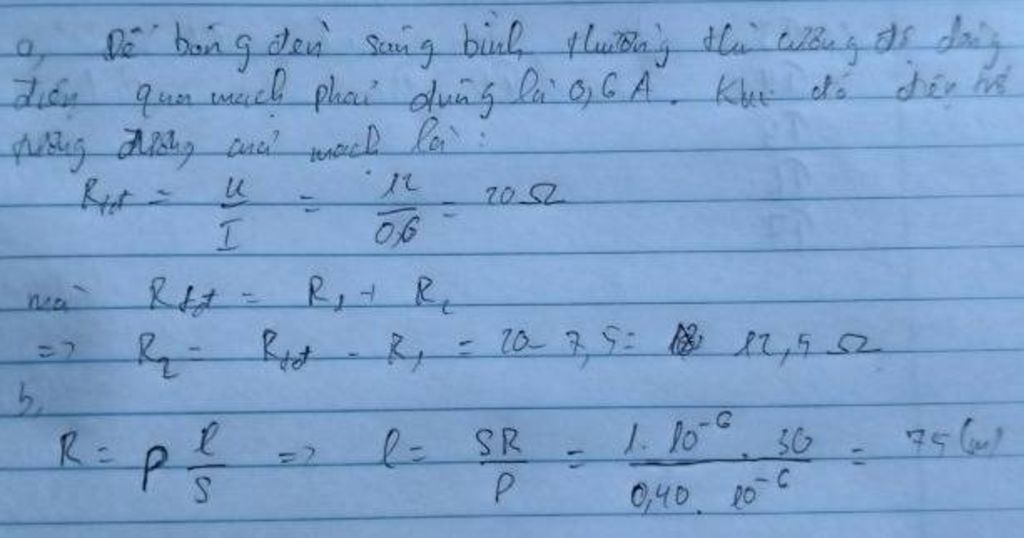 a, Để bóng đèn sáng bình thường thì cường độ dòng
điện qua mạch phải đúng là 0,6 A. Khi đó điện trở
tương đương của mạch là:
Rtđ = U/I = 12/0,6 = 20 Ω
mà Rtđ = R1 + R2
=> R2 = Rtđ - R1 = 20 - 7,5 = 12,5 Ω
b,
R = ρ l/S => l = SR/ρ = 1. 10^-6 . 30 / 0,40. 10^-6 = 75 (m)